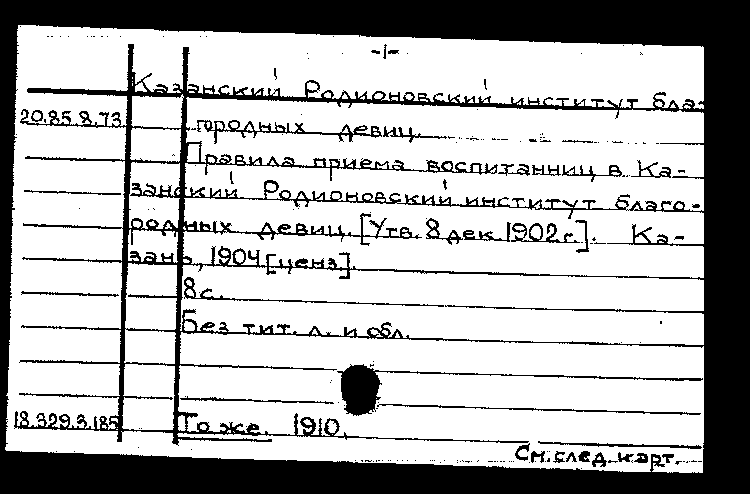 -1-
Казанский Родионовский институт бла-
20.85.8.73 городных девиц.
Правила приема воспитанниц в Ка-
занский Родионовский институт благо-
родных девиц. [Утв. 8 дек. 1902 г.]. Ка-
зань, 1904 [ценз].
8 с.
Без тит. л. и обл.
18.329.3.185 То же. 1910.
См. след. карт.